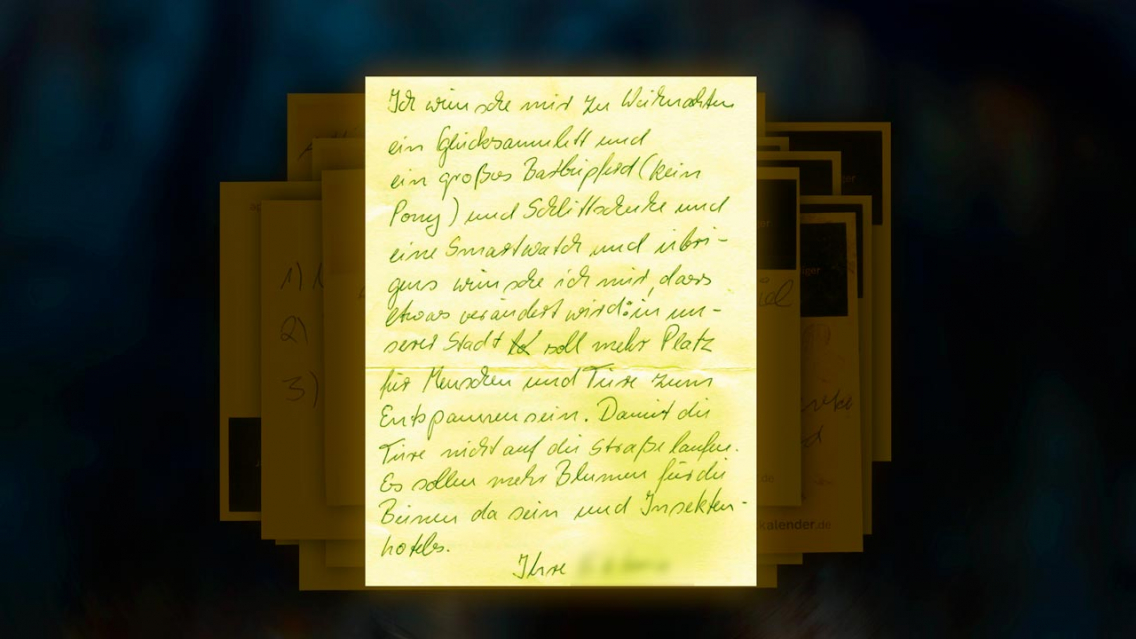 Ich wünsche mir zu Weihnachten
ein Glücksamulett und
ein großes Barbiepferd (kein
Pony) und Schlittschuhe und
eine Smartwatch und übri-
gens wünsche ich mir, dass
etwas verändert wird: in un-
serer Stadt soll mehr Platz
für Menschen und Tiere zum
Entspannen sein. Damit die
Tiere nicht auf die Straße laufen.
Es sollen mehr Blumen für die
Bienen da sein und Insekten-
hotels.
Ihre
1)
2)
3)
kalender.de